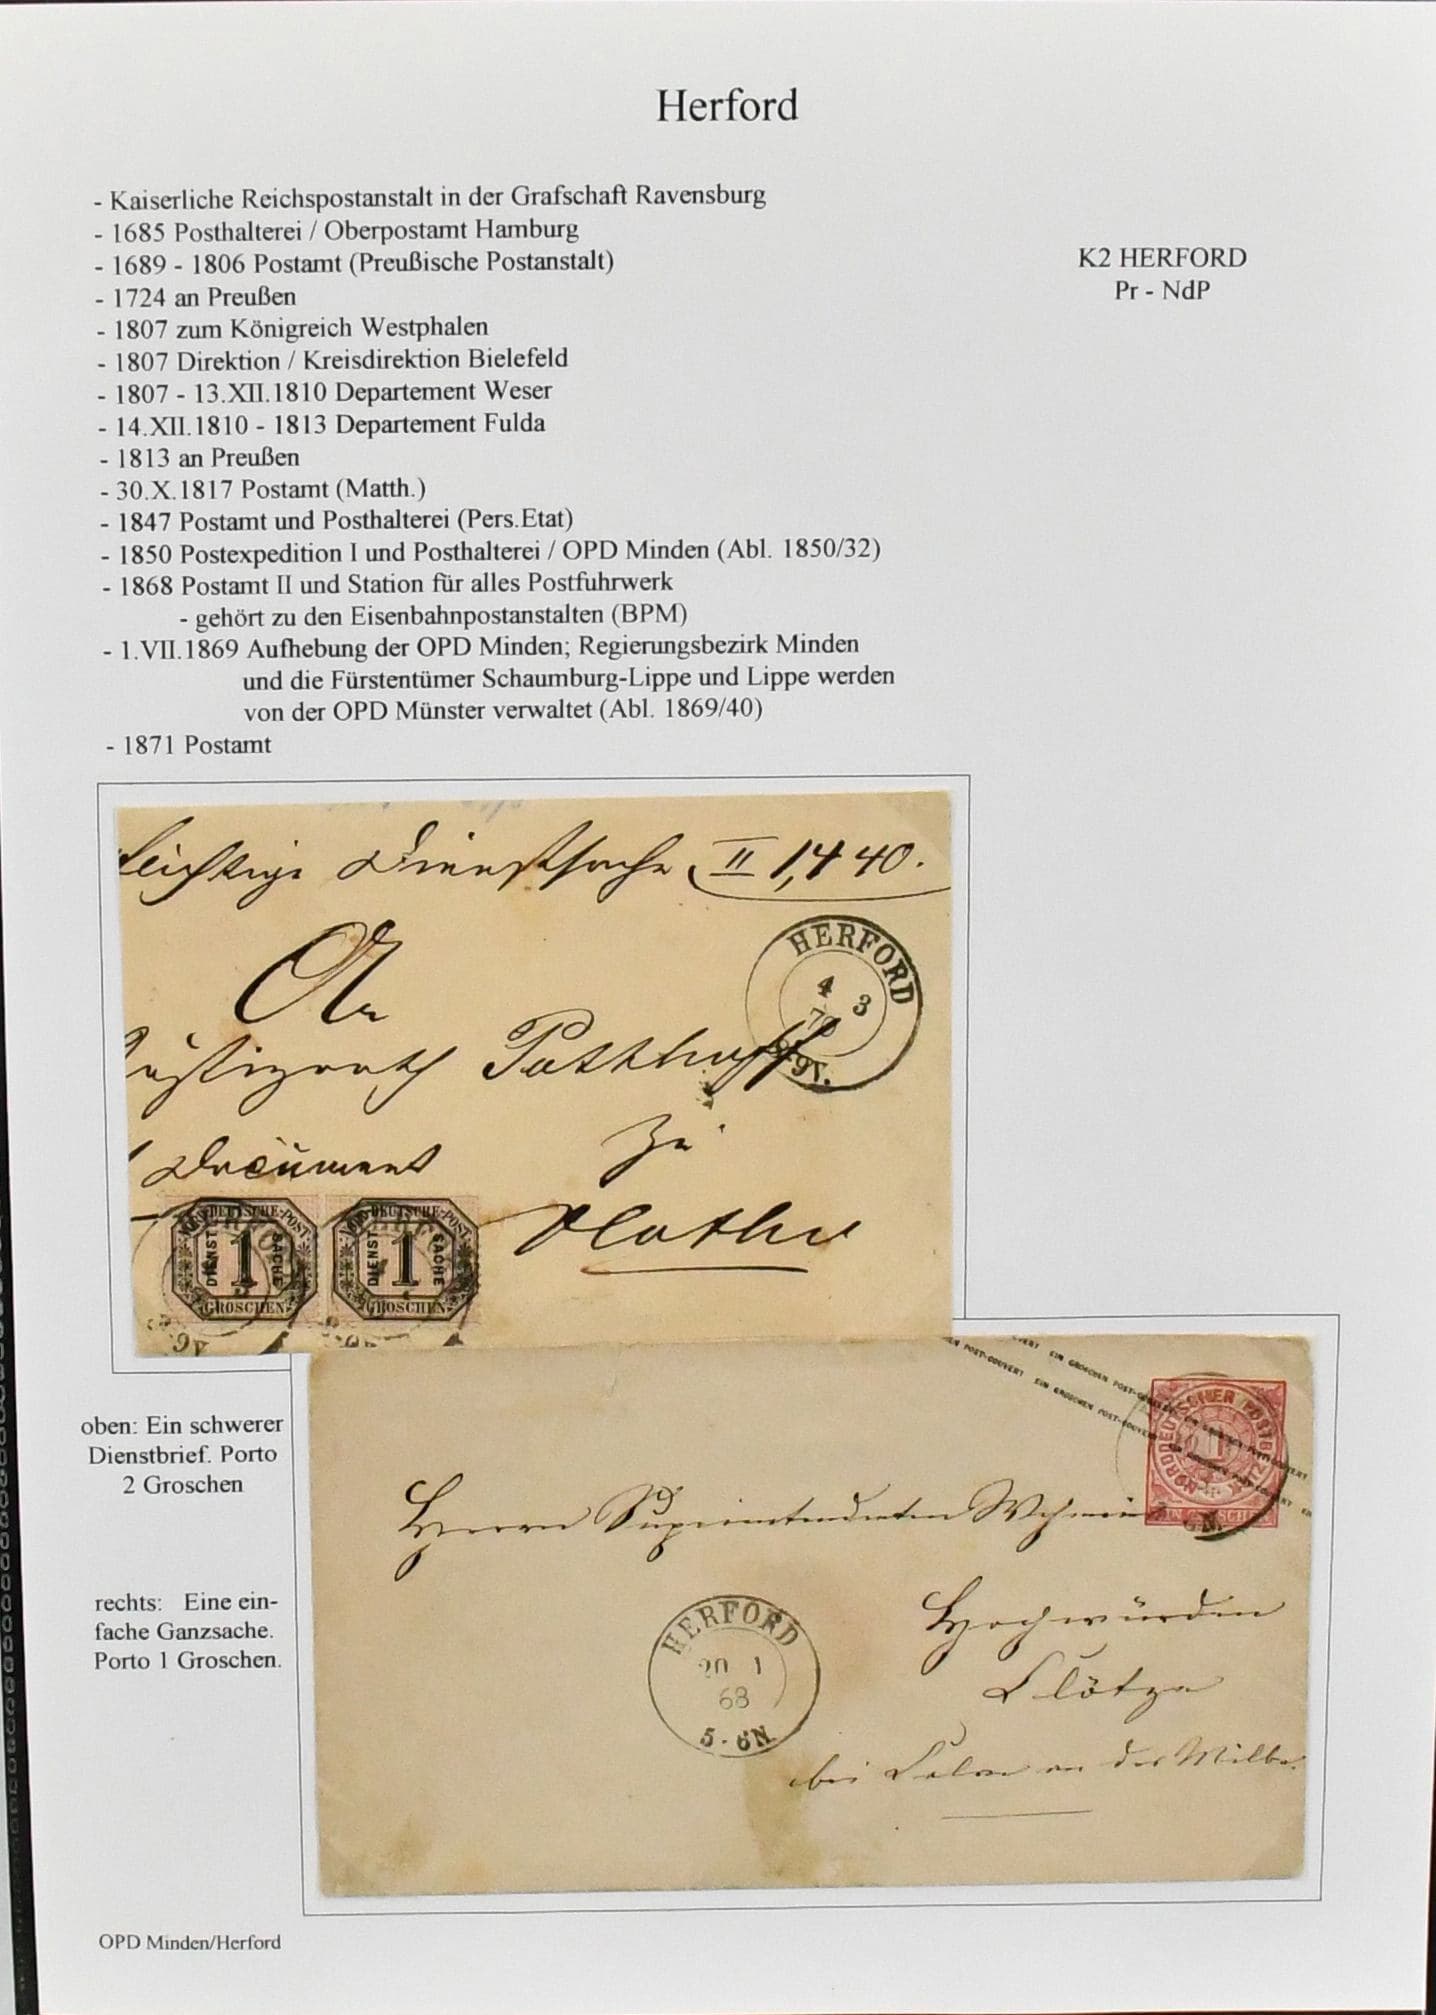 Herford
- Kaiserliche Reichspostanstalt in der Grafschaft Ravensburg
- 1685 Posthalterei / Oberpostamt Hamburg
- 1689 - 1806 Postamt (Preußische Postanstalt)
- 1724 an Preußen
- 1807 zum Königreich Westphalen
- 1807 Direktion / Kreisdirektion Bielefeld
- 1807 - 13.XII.1810 Departement Weser
- 14.XII.1810 - 1813 Departement Fulda
- 1813 an Preußen
- 30.X.1817 Postamt (Matth.)
- 1847 Postamt und Posthalterei (Pers.Etat)
- 1850 Postexpedition I und Posthalterei / OPD Minden (Abl. 1850/32)
- 1868 Postamt II und Station für alles Postfuhrwerk
- gehört zu den Eisenbahnpostanstalten (BPM)
- 1.VII.1869 Aufhebung der OPD Minden; Regierungsbezirk Minden
und die Fürstentümer Schaumburg-Lippe und Lippe werden
von der OPD Münster verwaltet (Abl. 1869/40)
- 1871 Postamt
K2 HERFORD
Pr - NdP
Dienstsache II 1,4 40.
An
Justizrath Potthoff
HERFORD
4 3
70
1 Document
zu
Vlotho
NORDDEUTSCHE-POST
DIENST 1 SACHE
GROSCHEN
NORDDEUTSCHE-POST
DIENST 1 SACHE
GROSCHEN
oben: Ein schwerer
Dienstbrief. Porto
2 Groschen
EIN GROSCHEN POST-COUVERT
EIN GROSCHEN POST-COUVERT
NORDDEUTSCHER POSTBEZIRK
1
EIN GROSCHEN
Herrn Superintendenten
Hochwürden
Clötze
bei Calve an der Milbe.
HERFORD
20 1
68
5-6N
rechts: Eine ein-
fache Ganzsache.
Porto 1 Groschen.
OPD Minden/Herford